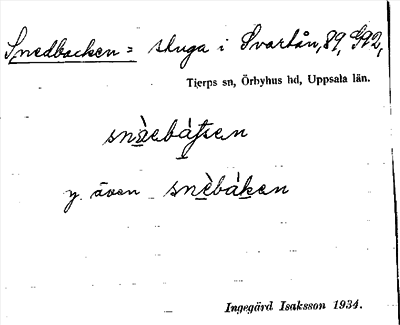 Snedbacken = stuga i Svartån, 89, G92,
Tierps sn, Örbyhus hd, Uppsala län.
y. även snèbáken
Ingegärd Isaksson 1934.